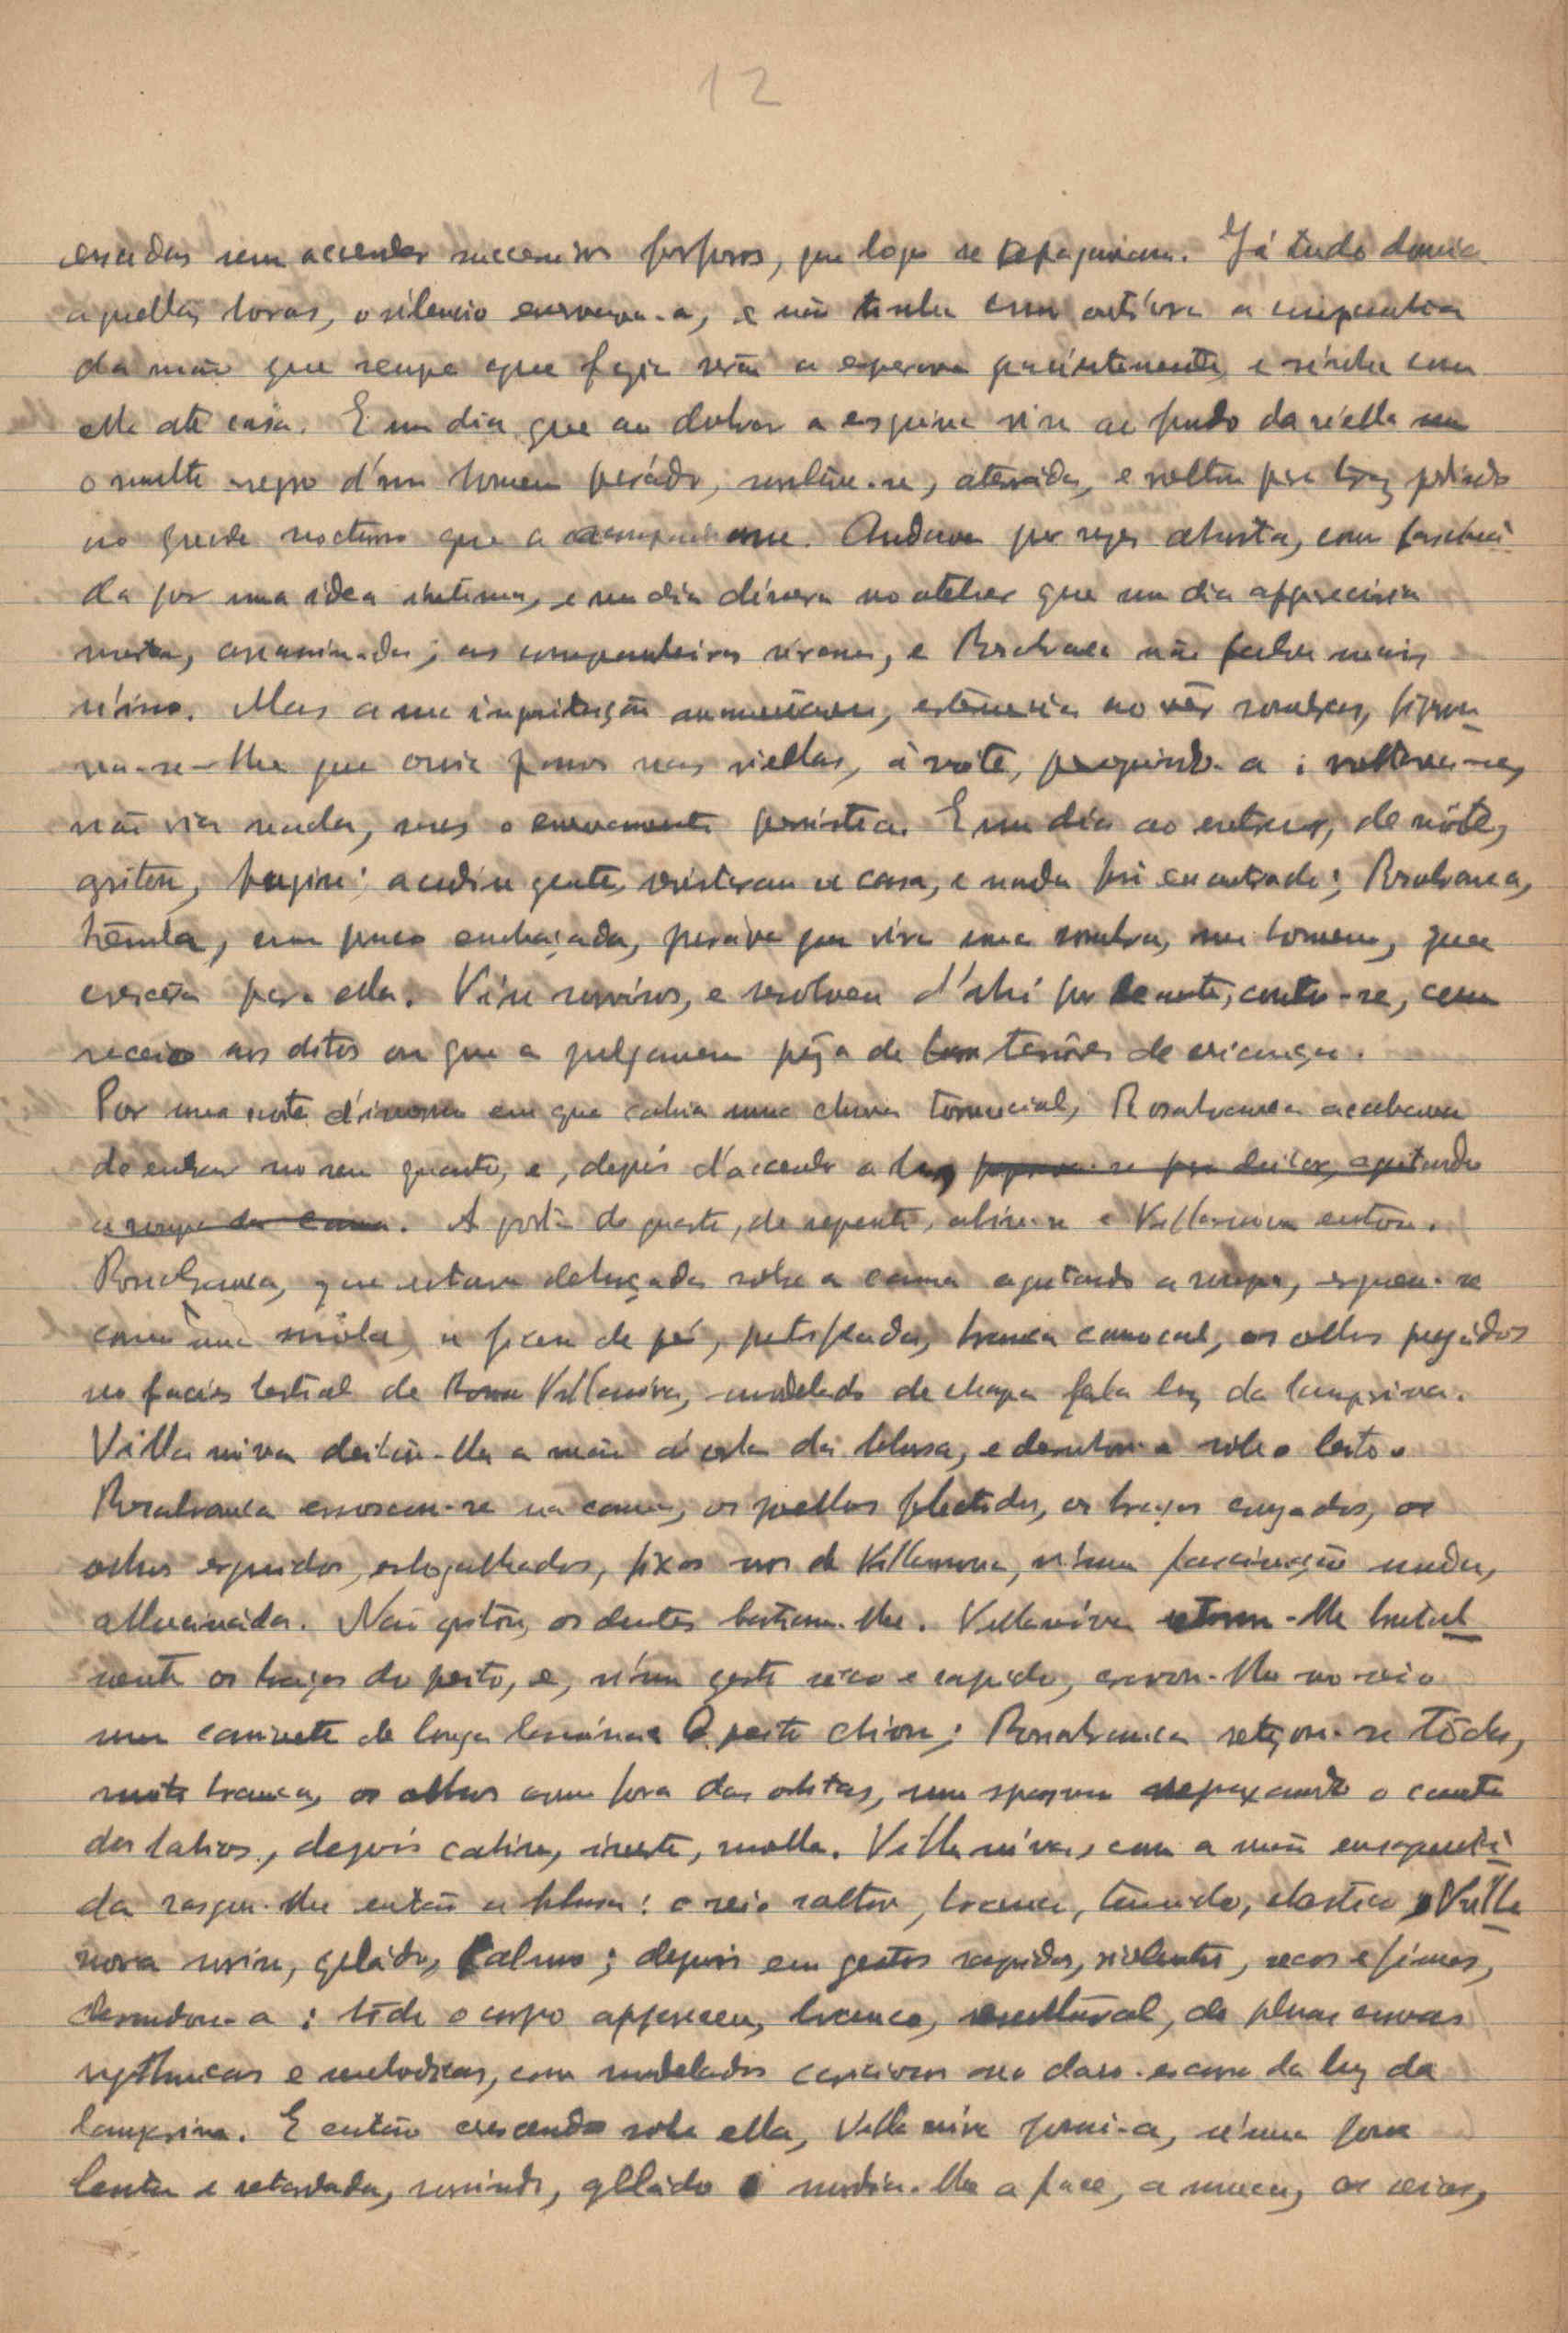 12
escadas sem accender successivos phosphoros, que logo se apagavam. Já tudo dormia
aquellas horas, o silencio enervava-a, e não tinha como outróra a companhia
da mãe que sempe que fazia serão a esperava pacientemente, e vinha com
ella até casa. E um dia que ao dobrar a esquina viu ao fundo da viella
o vulto negro d'um homem parádo, sentiu-se, aterrada, e voltou para traz pedindo
ao guarda nocturno que a acompanhasse. Andava por vezes absorta, como fascina-
da por uma idea intima, e um dia dissera no atelier que um dia appareceria
morta, assassinada; as companheiras riram, e Rosabranca não fallou mais
n'isso. Mas a sua inquietação augmentava, estremecia ao vêr sombras, figura
va-se-lhe que ouvia passos nas viellas, à noite, perseguindo-a; voltava-se,
não via nada, mas o enervamento persistia. E um dia ao entrar, de nóite,
gritou, fugiu; acudiu gente, revistaram a casa, e nada foi encontrado; Rosabranca,
trémula, um pouco embaçada, jurava que vira uma sombra, um homem, que
crescera para ella. Viu sorrisos, e resolveu d'ahi por deante, conter-se, com
receio aos ditos ou que a julgassem pêça de terrôres de criança.
Por uma noite d'inverno em que cahia uma chuva torrencial, Rosabranca acabava
de entrar no seu quarto, e, depois d'accender a luz, preparava-se para deitar, ageitando
a roupa da cama. A porta do quarto, de repente, abriu-se e Villanova entrou.
Rosabranca, que estava debruçada sobre a cama ageitando a roupa, ergueu-se
como uma móla, e ficou de pé, petrificada, branca como cal, os olhos pregádos
no facies bestial de Villanóva, modelado de chapa pela luz da lamparina.
Villanova deitou-lhe a mão á gola da blusa, e derrubou-a sobre o leito.
Rosabranca enroscou-se na cama, os joelhos flectidos, os braços cruzados, os
olhos erguidos, esbogalhados, fixos nos de Villanova, n'uma fascinação muda,
allucinada. Não gritou, os dentes batiam-lhe. Villanóva retirou-lhe brutal
mente os braços do peito, e, n'um gesto sêco e rapido, cravou-lhe no seio
um canivete de longa lamina. O peito chiou; Rosabranca retezou-se tôda,
muito branca, os olhos quasi fora das orbitas, um spasmo repuxando o canto
dos labios, depois cahiu, inerte, molle. Villanóva, com a mão ensaguentá-
da rasgou-lhe então a blusa: o seio saltou, branco, tumido, elastico, Villa
nova sorriu, geládo, calmo; depois em gestos rapidos, violentos, secos e firmes,
desnudou-a: todo o corpo appareceu, branco, escultural, de puras curvas
rythmicas e melodicas, com modelados no claro-escuro da luz da
lamparina. E então crescendo sobre ella, Villanóva possui-a, n'uma posse
lenta e retardada, sorrindo, geládo mordia-lhe a face, a nuca, os seios,